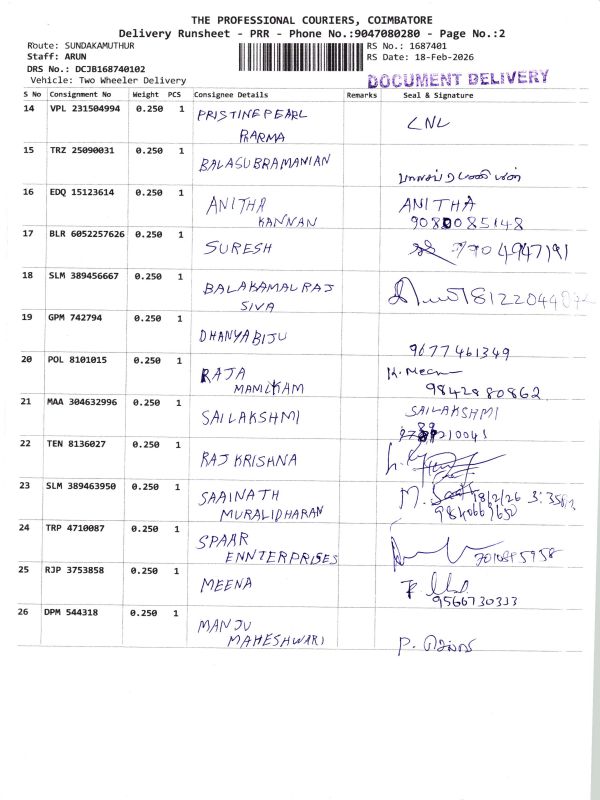 THE PROFESSIONAL COURIERS, COIMBATORE
Delivery Runsheet - PRR - Phone No.:9047080280 - Page No.:2
Route: SUNDAKAMUTHUR
Staff: ARUN
DRS No.: DCJB168740102
Vehicle: Two Wheeler Delivery
RS No.: 1687401
RS Date: 18-Feb-2026
DOCUMENT DELIVERY
S No Consignment No Weight PCS Consignee Details Remarks Seal & Signature
14 VPL 231504994 0.250 1 PRISTINEPEARL
PARMA
LNL
15 TRZ 25090031 0.250 1 BALASUBRAMANIAN
16 EDQ 15123614 0.250 1 ANITHA ANITHA
KANNAN 9080085148
17 BLR 6052257626 0.250 1 SURESH 7904947191
18 SLM 389456667 0.250 1 BALAKAMALRAJ
SIVA
19 GPM 742794 0.250 1 DHANYABIJU
9677461349
20 POL 8101015 0.250 1 RAJA K. Meena
MANIKAM 9842880862
21 MAA 304632996 0.250 1 SAILAKSHMI SAILAKSHMI
22 TEN 8136027 0.250 1 RAJKRISHNA
23 SLM 389463950 0.250 1 SAAINATH M. 18/2/26
MURALIDHARAN
24 TRP 4710087 0.250 1 SPAAR
ENNTERPRISES
25 RJP 3753858 0.250 1 MEENA
9566730333
26 DPM 544318 0.250 1 MANJU
MAHESHWARI P.